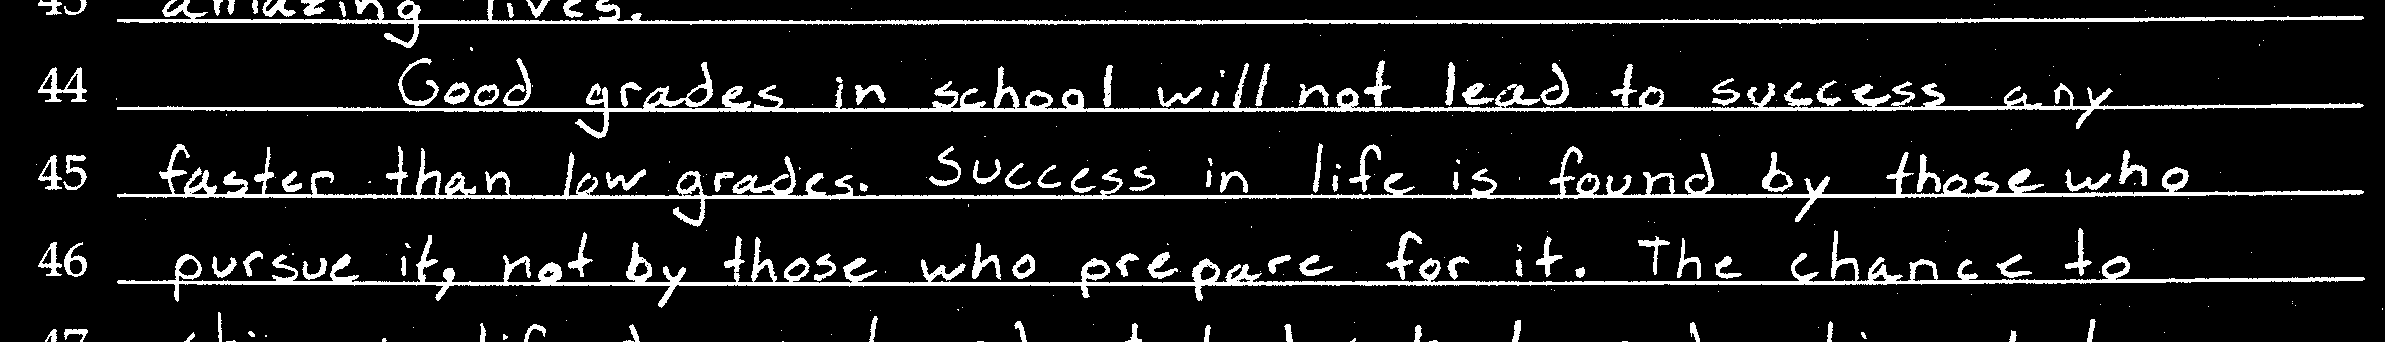 43 amazing lives.
44 Good grades in school will not lead to success any
45 faster than low grades. Success in life is found by those who
46 pursue it, not by those who prepare for it. The chance to
47